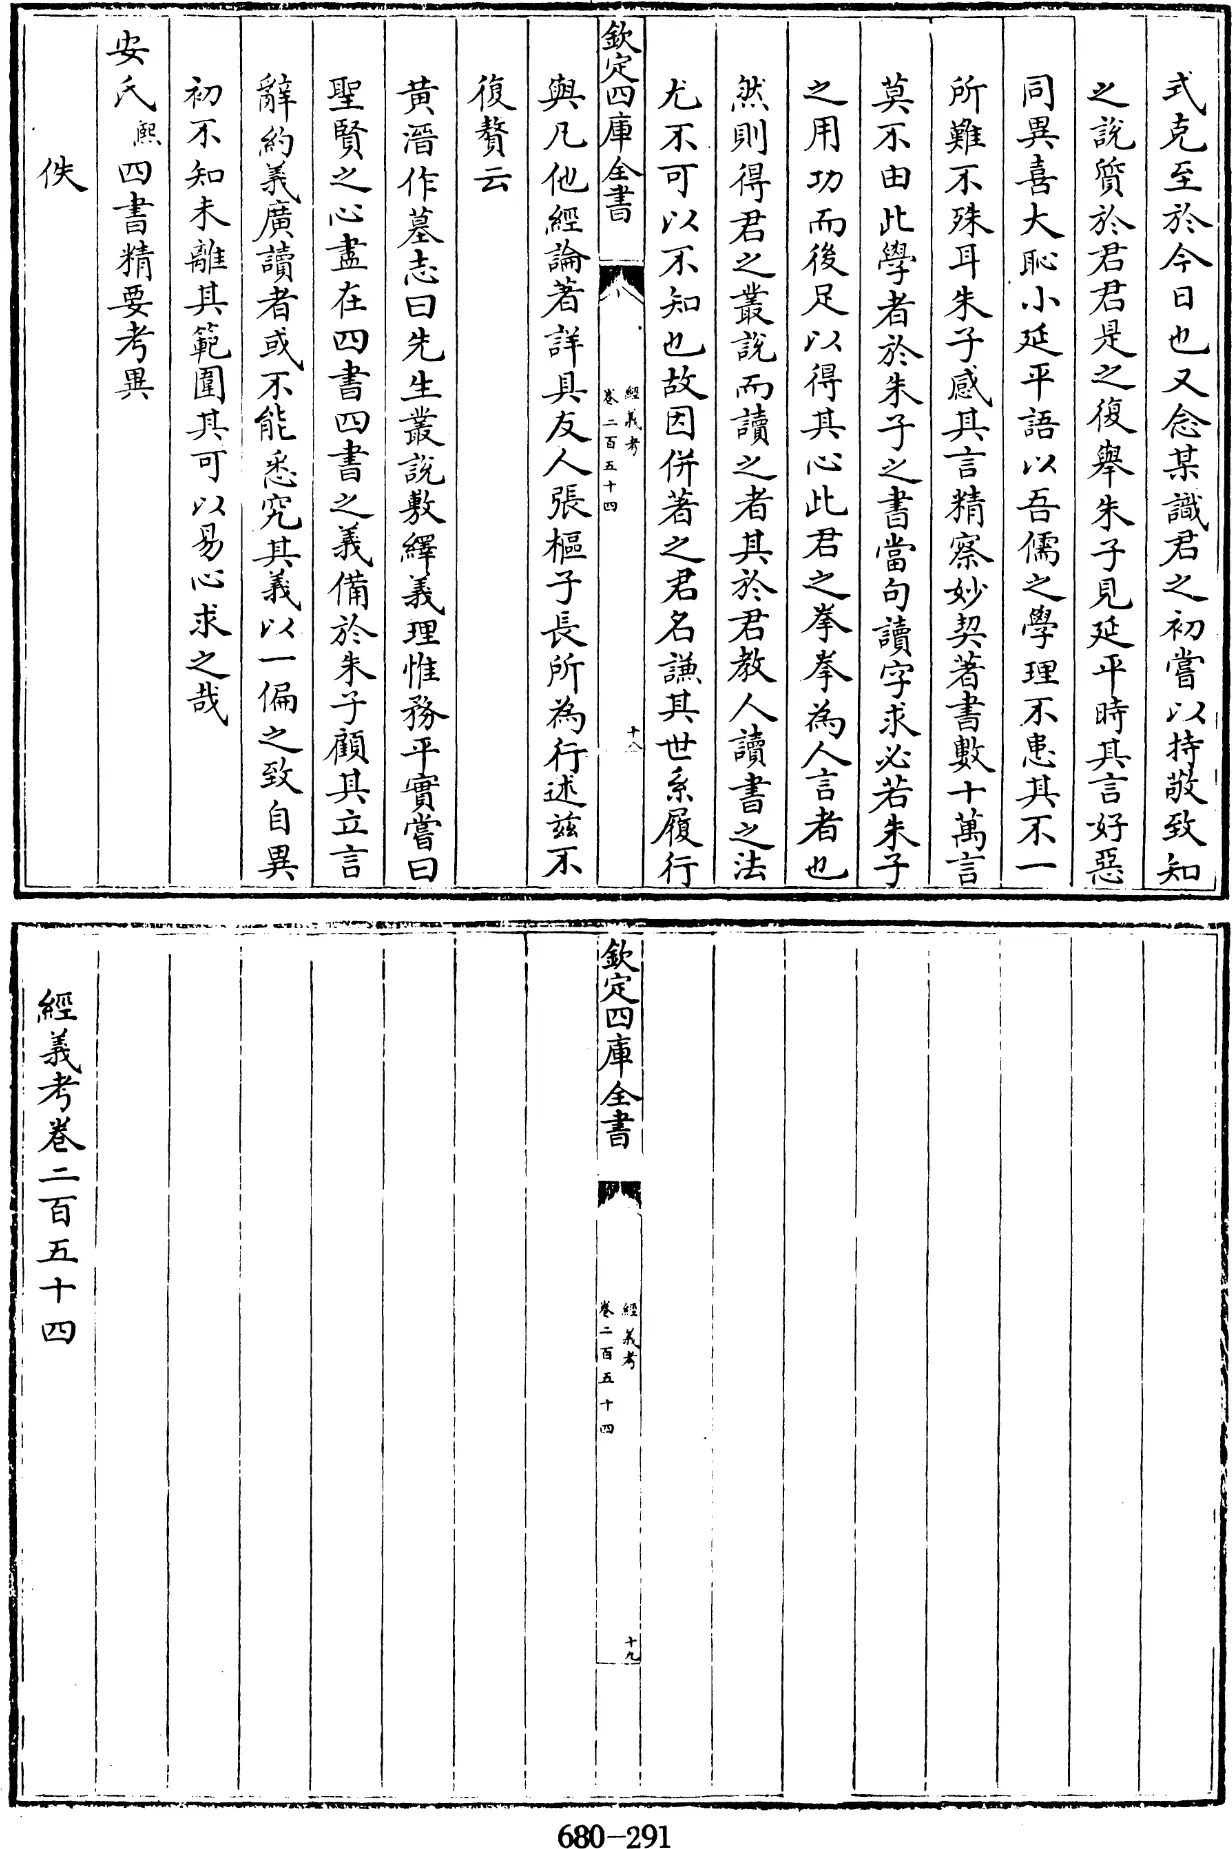 式克至於今日也又念某識君之初嘗以持敬致知
之說質於君君是之復舉朱子見延平時其言好惡
同異喜大恥小延平語以吾儒之學理不患其不一
所難不殊耳朱子感其言精察妙契著書數十萬言
莫不由此學者於朱子之書當句讀字求必若朱子
之用功而後足以得其心此君之拳拳為人言者也
然則得君之叢說而讀之者其於君教人讀書之法
尤不可以不知也故因併著之君名謙其世系履行
欽定四庫全書
經義考
卷二百五十四
十八
與凡他經論著詳具友人張樞子長所為行述茲不
復贅云
黃溍作墓志曰先生叢說敷繹義理惟務平實嘗曰
聖賢之心盡在四書四書之義備於朱子顧其立言
辭約義廣讀者或不能悉究其義以一偏之致自異
初不知未離其範圍其可以易心求之哉
安氏熙四書精要考異
佚
欽定四庫全書
經義考
卷二百五十四
十九
經義考卷二百五十四
680-291